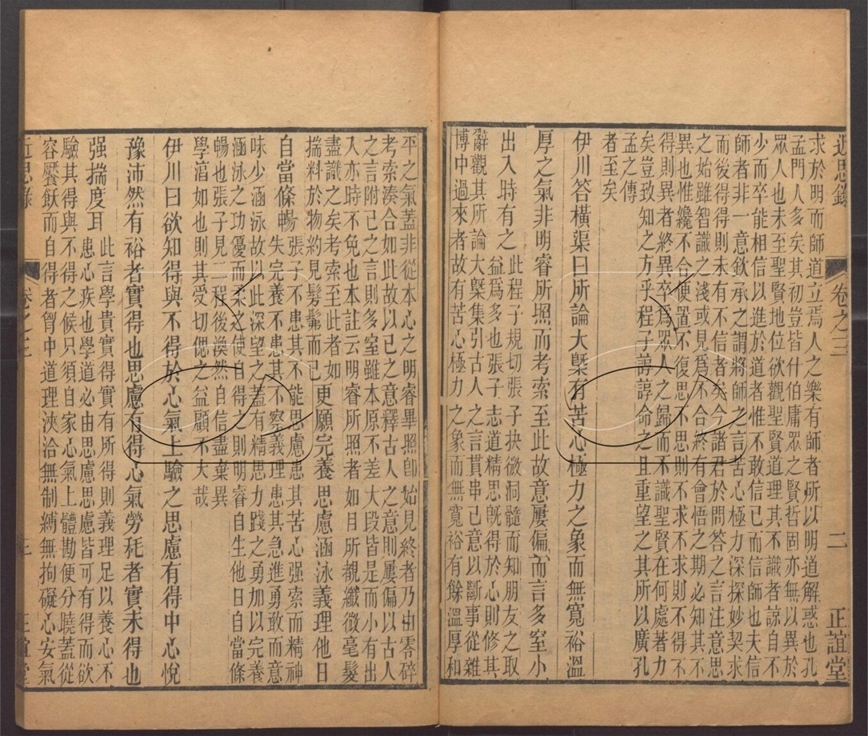 近思錄
卷之三
二
正誼堂
求於明而師道立焉人之樂有師者所以明道解惑也孔
孟門人多矣其初豈皆什伯庸眾之賢哲固亦無以異於
眾人也未至聖賢地位欲觀聖賢道理其不識者諒自不
少而卒能相信以進於道者惟不敢信已而信師也夫信
師者非一意欽承之謂將師之言苦心極力深探妙契求
而後得得則未有不信者矣今諸君於問答之言注意思
之始雖智識之淺或見為不合終有會悟之期必知其不
異也惟纔不合便置不復思不思則不求不求則不得不
得則異者終異卒為眾人之歸而不識聖賢在何處著力
矣豈致知之方乎程子諄諄命之且重望之其所以廣孔
孟之傳
者至矣
伊川答橫渠曰所論大槩有苦心極力之象而無寬裕溫
厚之氣非明睿所照而考索至此故意屢偏而言多窒小
出入時有之
此程子規切張子抉微洞髓而知朋友之取
益為多也張子志道精思旣得於心則修其
辭觀其所論大槩集引古人之言貫串己意以斷事從雜
博中過來者故有苦心極力之象而無寬裕有餘溫厚和
平之氣蓋非從本心之明睿畢照卽始見終者乃由零碎
考索湊合如此故以已之意釋古人之意則屢偏以古人
之言附己之言則多窒雖本原不差大段皆是而小有出
入亦時不免也本註云明睿所照者如目所觀纖微毫髮
盡識之矣考索至此者如
揣料於物約見髣髴而已
更願完養思慮涵泳義理他日
自當條暢
張子不患其不能思慮患其苦心强索而精神
失完養不患其不察義理患其急進勇敢而意
味少涵泳故以此深望之蓋有精思力踐之勇加以完養
涵泳之功優而柔之使自得之則明睿自生他日自當條
暢也張子見二程後渙然自信盡棄異
學湻如也則其受切偲之益顧不大哉
伊川曰欲知得與不得於心氣上驗之思慮有得中心悅
豫沛然有裕者實得也思慮有得心氣勞耗者實未得也
强揣度耳
此言學貴實得實有所得則義理足以養心不
患心疾也學道必由思慮思慮皆可有得而欲
驗其得與不得之候只須自家心氣上體勘便分曉蓋從
容饜飫而自得者胷中道理浹洽無制縛無拘礙心安氣
近思錄
卷之三
三
正誼堂